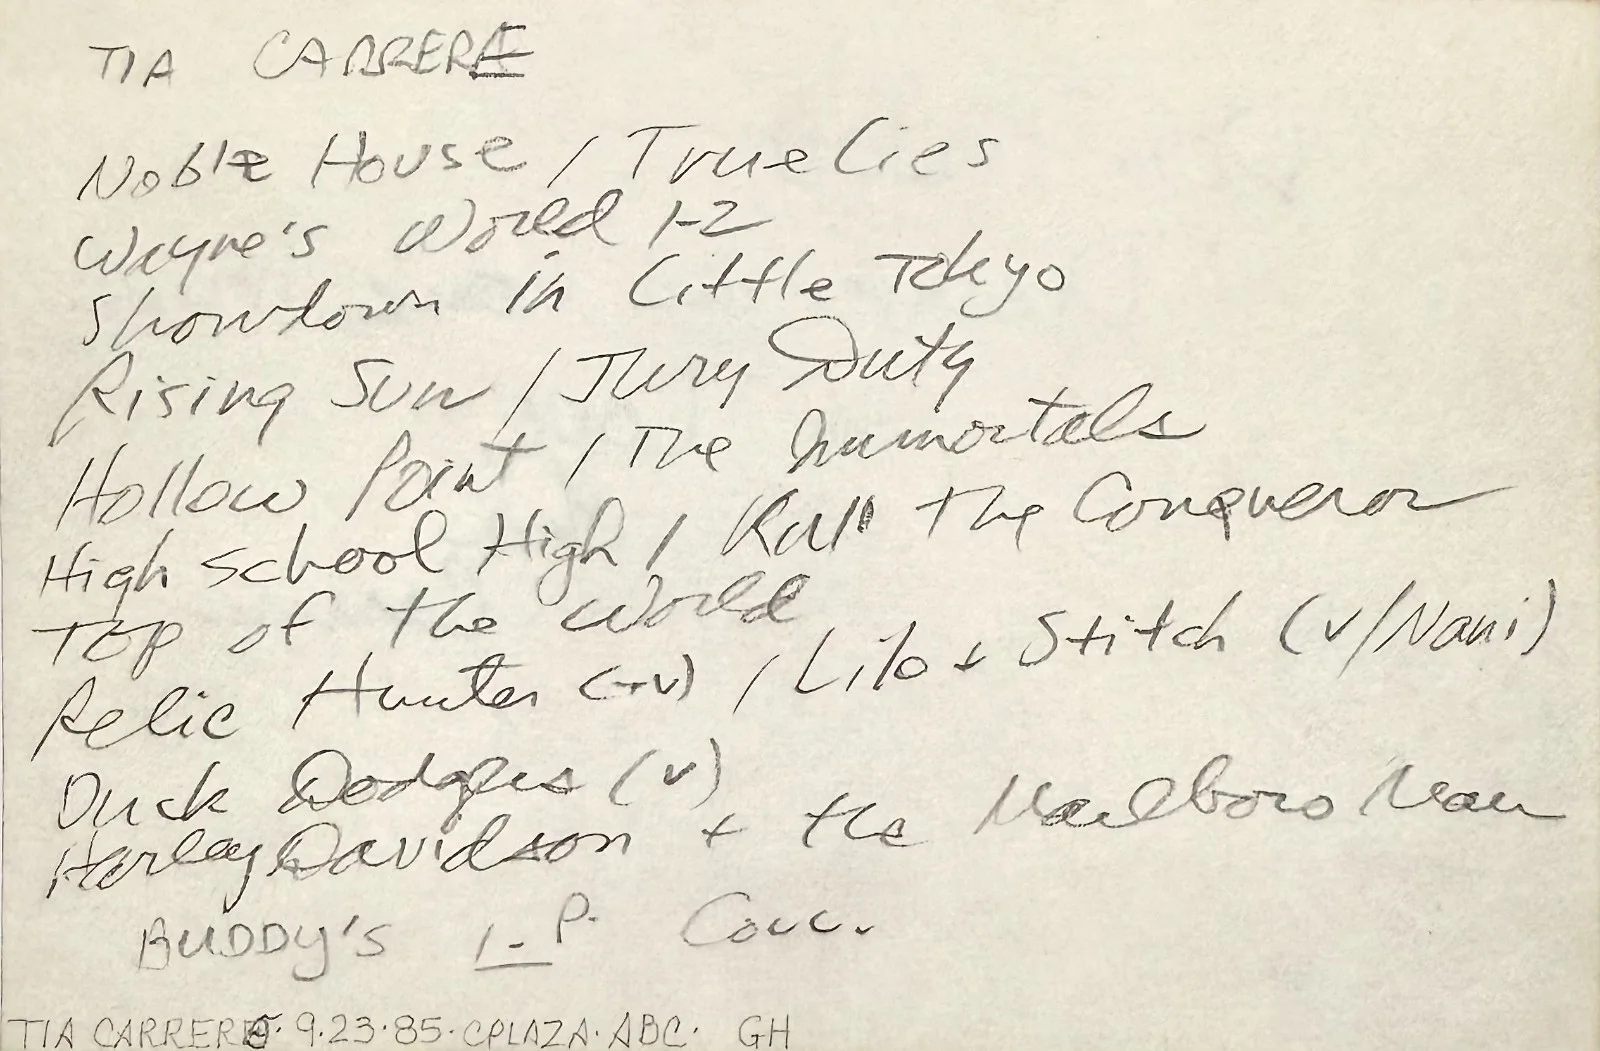 TIA CARRERE
Noble House / True Lies
Wayne's World 1-2
Showdown in Little Tokyo
Rising Sun / Jury Duty
Hollow Point / The Immortals
High School High / Kull The Conqueror
Top of the World
Relic Hunter (TV) / Lilo + Stitch (v/Nani)
Duck Dodgers (v)
Harley Davidson + the Marlboro Man
BUDDY'S 1-P. Conc.
TIA CARRERE· 9·23·85· CPLAZA· ABC· GH